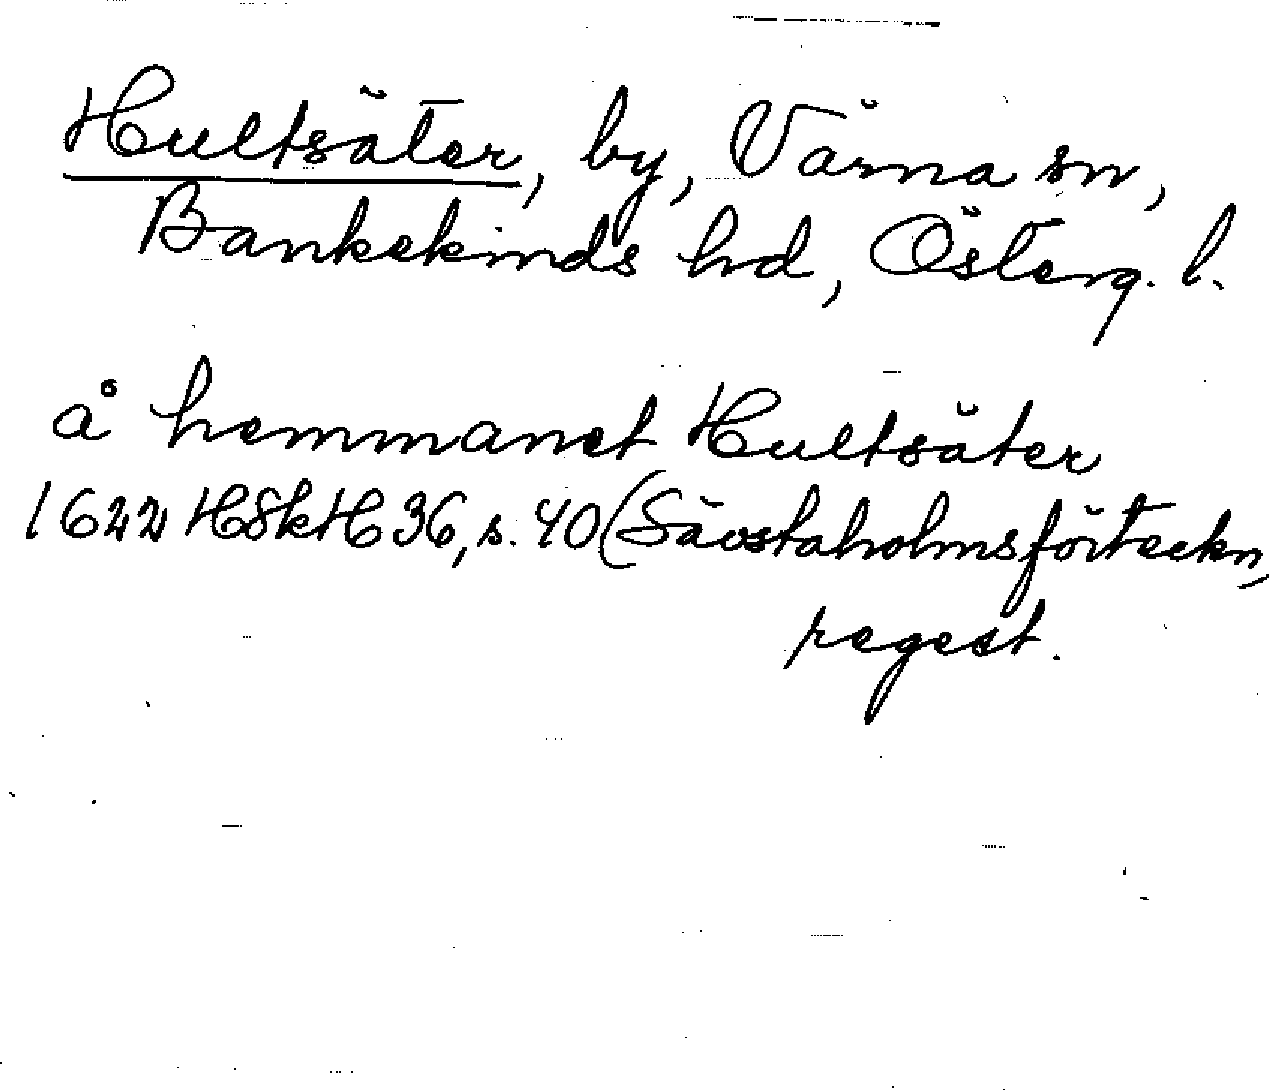 Hultsäter, by, Värna sn,
Bankekinds hd, Österg. l.
å hemmanet Hultsäter
1622 HSkH 36, s. 40 (Sävstaholmsförteckn,
regest.